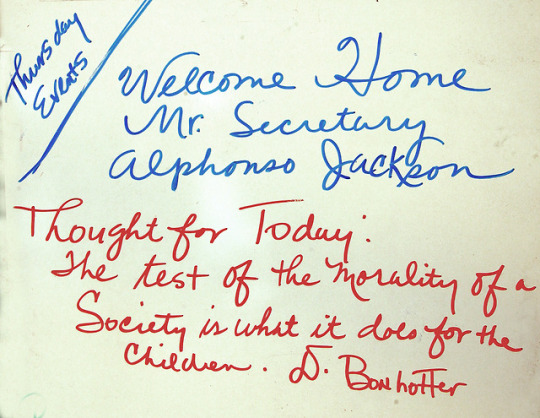 Thursday
Events
Welcome Home
Mr. Secretary
Alphonso Jackson
Thought for Today:
The test of the Morality of a
Society is what it does for the
Children. D. Bonhoffer